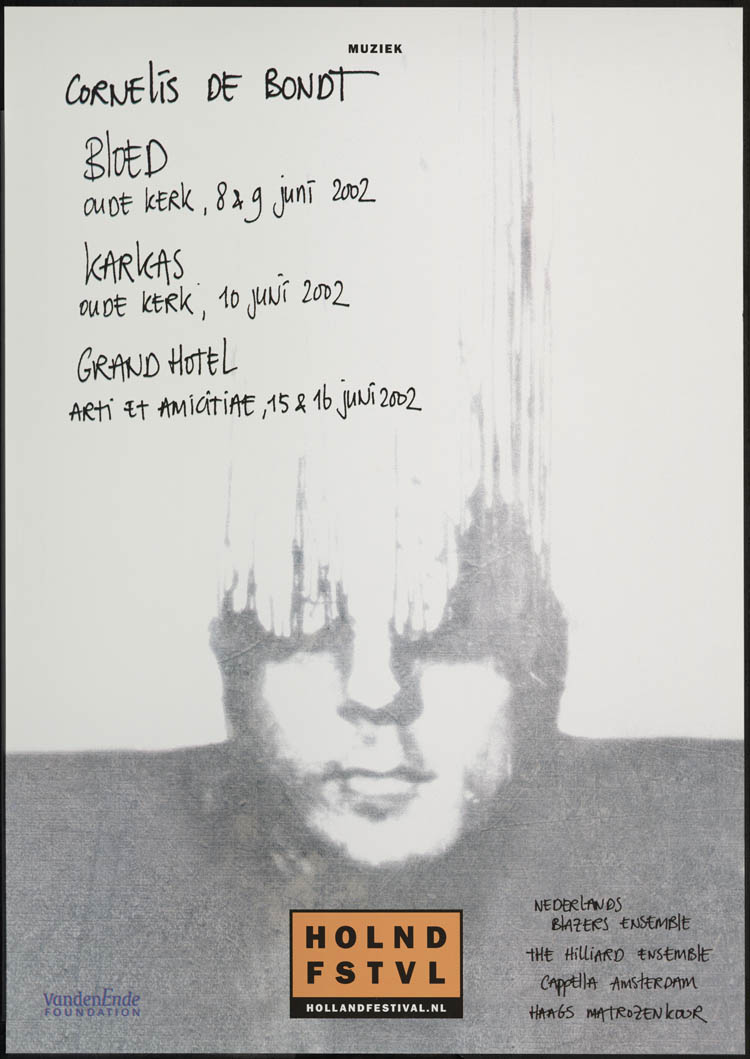 MUZIEK
CORNELIS DE BONDT
BLOED
OUDE KERK, 8 & 9 juni 2002
KARKAS
OUDE KERK, 10 juni 2002
GRAND HOTEL
ARTI ET AMICITIAE, 15 & 16 juni 2002
NEDERLANDS
BLAZERS ENSEMBLE
THE HILLIARD ENSEMBLE
CAPPELLA AMSTERDAM
HAAGS MATROZENKOOR
HOLND
FSTVL
HOLLANDFESTIVAL.NL
VandenEnde
FOUNDATION